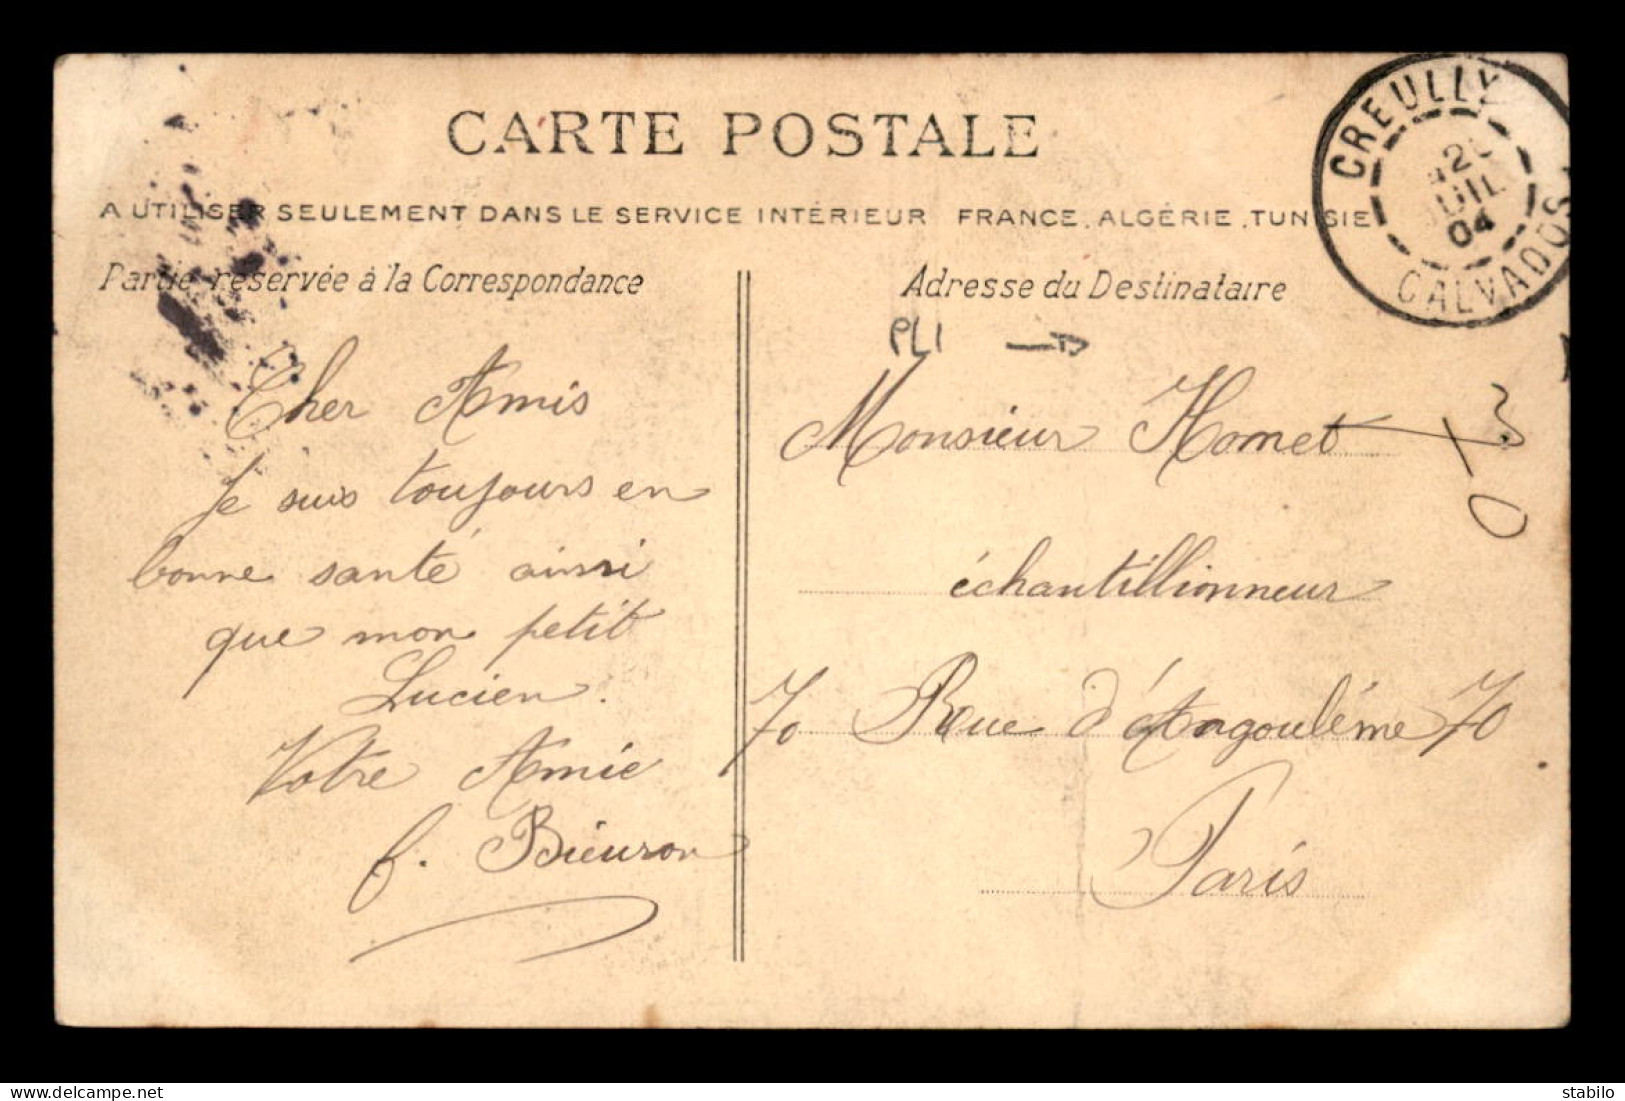 CARTE POSTALE
A UTILISER SEULEMENT DANS LE SERVICE INTÉRIEUR FRANCE, ALGÉRIE, TUNISIE
CREULLY
JUIL
04
CALVADOS
Partie réservée à la Correspondance
Cher Amis
Je suis toujours en
bonne santé ainsi
que mon petit
Lucien.
Votre Amie
f. Bieuron
Adresse du Destinataire
PLI
Monsieur Homet
échantillionneur
70 Rue d'Angoulême 70
Paris
delcampe.net
stabilo